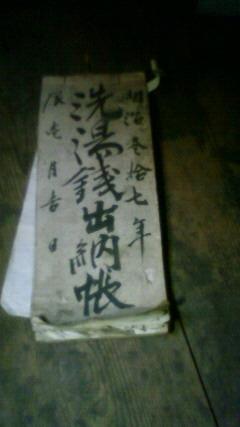 明治叁拾七年
洗湯銭出納帳
辰壱月吉日